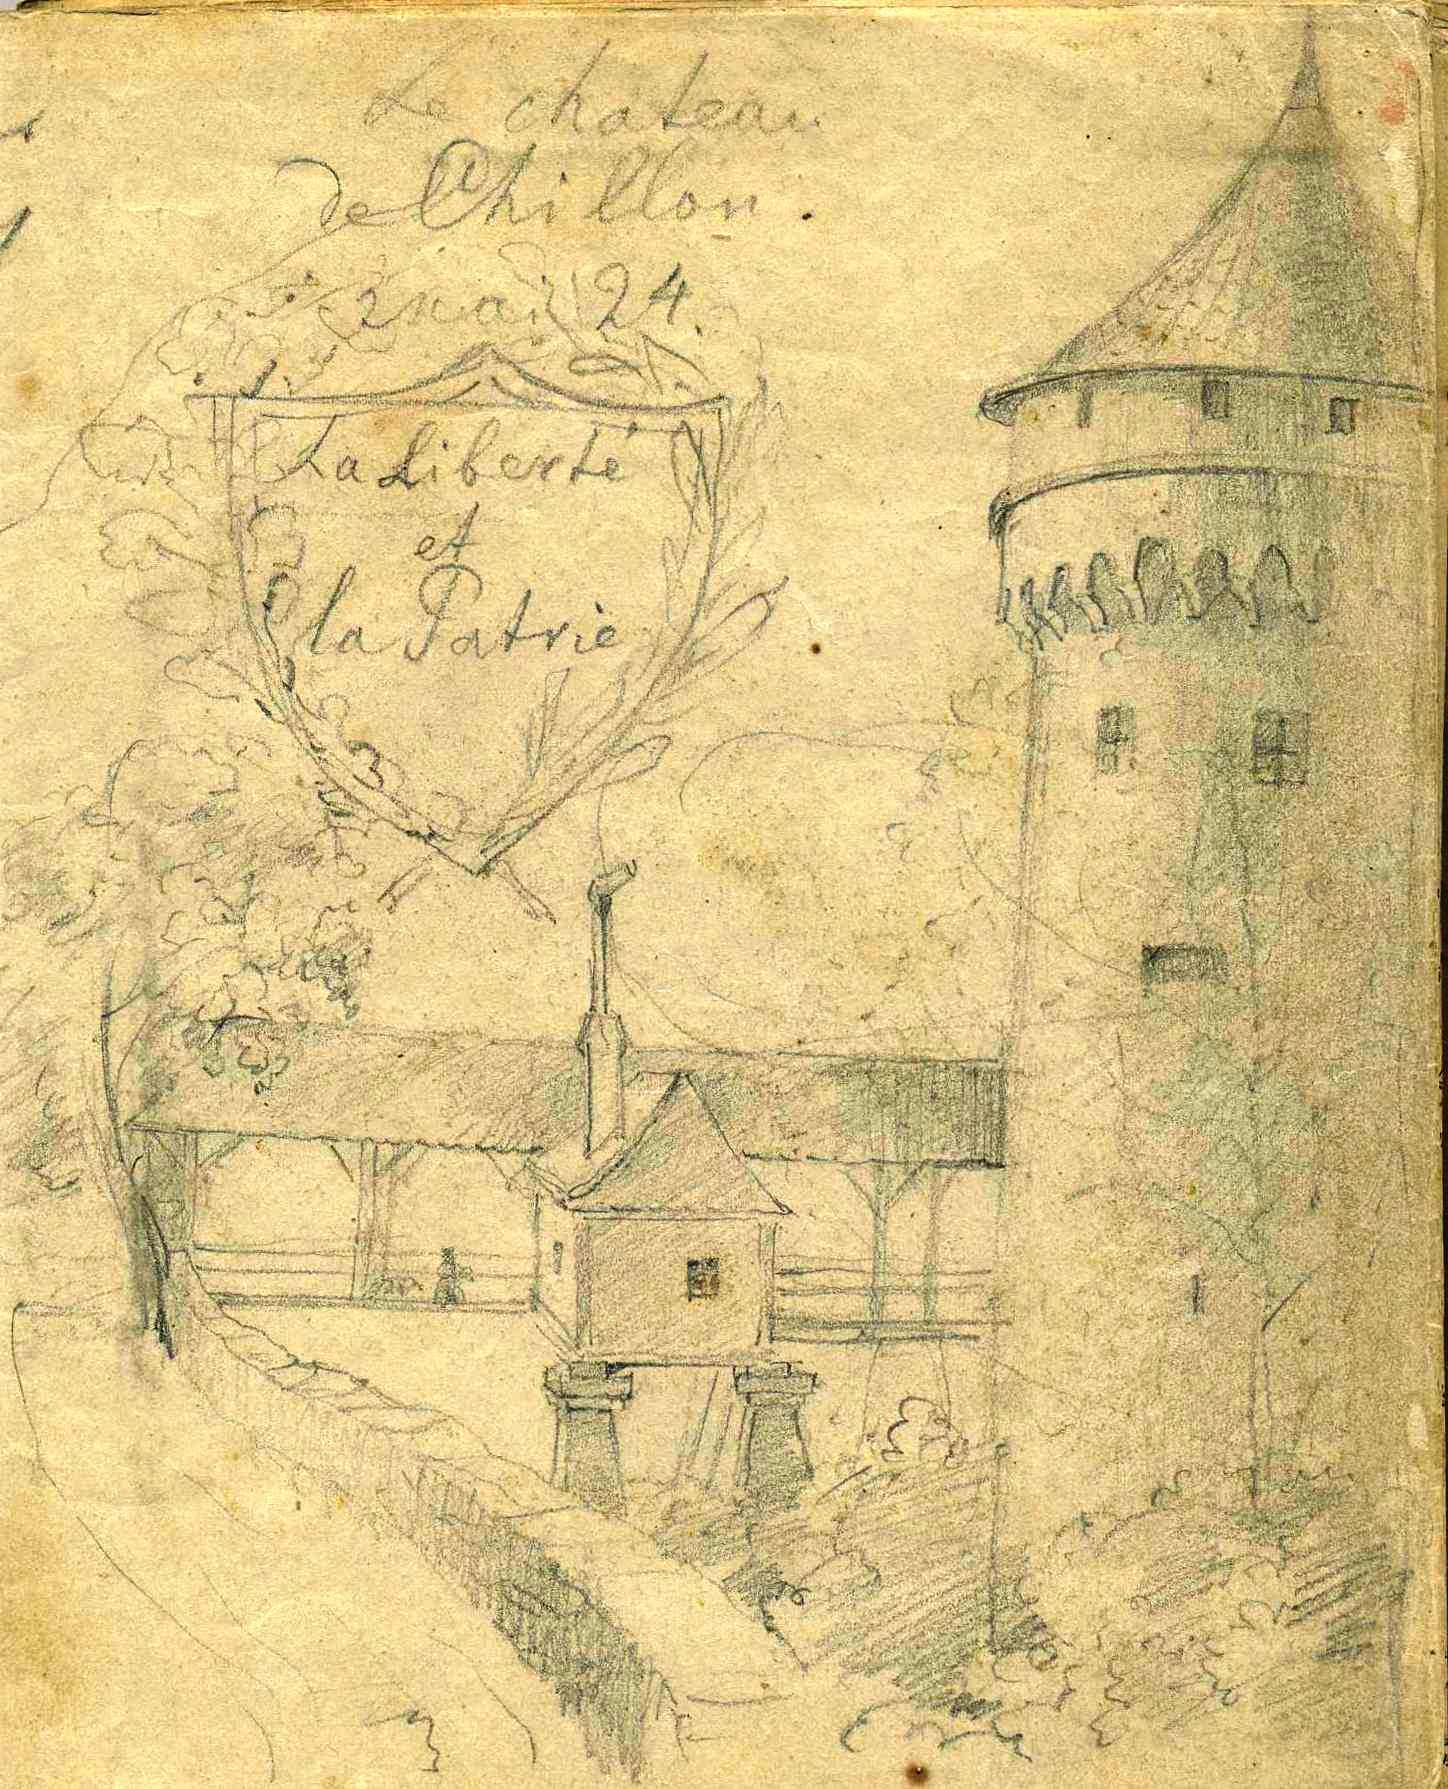 Le chateau
de Chillon.
2 mai 24.
La Liberté
et
la Patrie